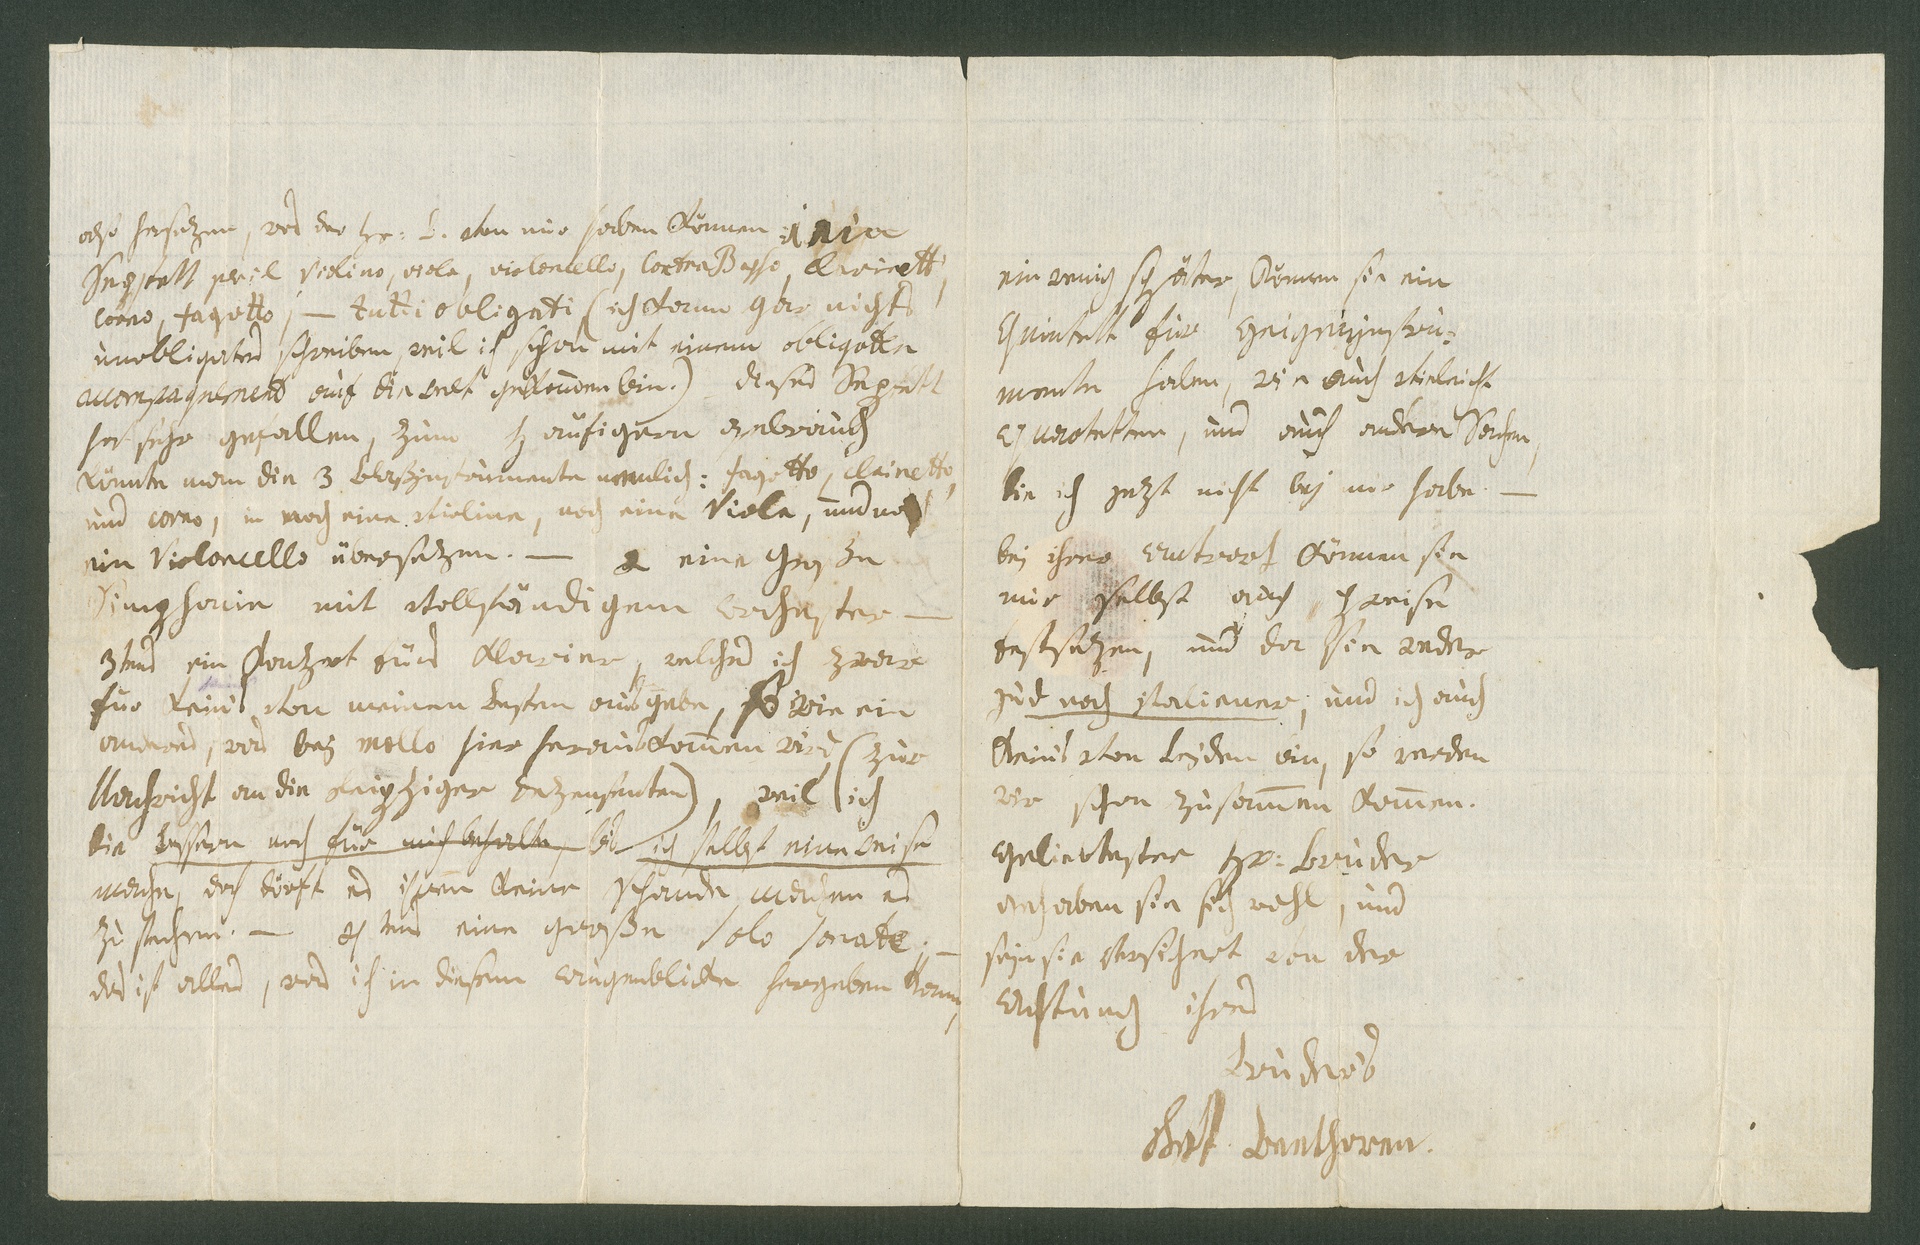 also hersezen, was der Hr: b. von mir haben könne: 1 ein
Septett per il Violino, viola, violoncello, ContraBasso, Clarinett,
Corno, fagotto, — tutti obligati (ich kann gar nichts
unobligates schreiben, weil ich schon mit einem obligaten
accompagnement auf die welt gekommen bin.) dieses Septett
hat sehr gefallen, zum häufigern gebrauch
könnte man die 3 blaßinstrumente nemlich: fagotto, clarinetto,
und corno, in noch eine violine, noch eine Viola, und noch
ein Violoncello übersezen. — 2 eine große
Simphonie mit vollständigem orchester —
3tens ein Konzert fürs Klavier, welches ich zwar
für keins von meinen besten ausgebe, so wie ein
anderes, was bey mollo hier herauskommen wird (zur
Nachricht an die Leipziger rezensenten), weil ich
die bessern noch für mich behalte, bis ich selbst eine reise
mache, doch dörft es ihnen keine schande machen es
zu stechen. — 4tens eine große Solo sonate; —
das ist alles, was ich in diesem augenblicke hergeben kann,
ein wenig später können sie ein
Quintett für geigeninstru-
mente haben, wie auch vieleicht
Quartetten, und auch andere Sachen,
die ich jezt nicht bey mir habe —
bey ihrer antwort können sie
mir selbst auch preise
festsezen, und da sie weder
jud noch italiener, und ich auch
keins von beyden bin, so werden
wir schon zusammen kommen.
geliebtester Hr: bruder
gehaben sie sich wohl, und
seyn sie versichert von der
achtung ihres
bruders
Beethoven.